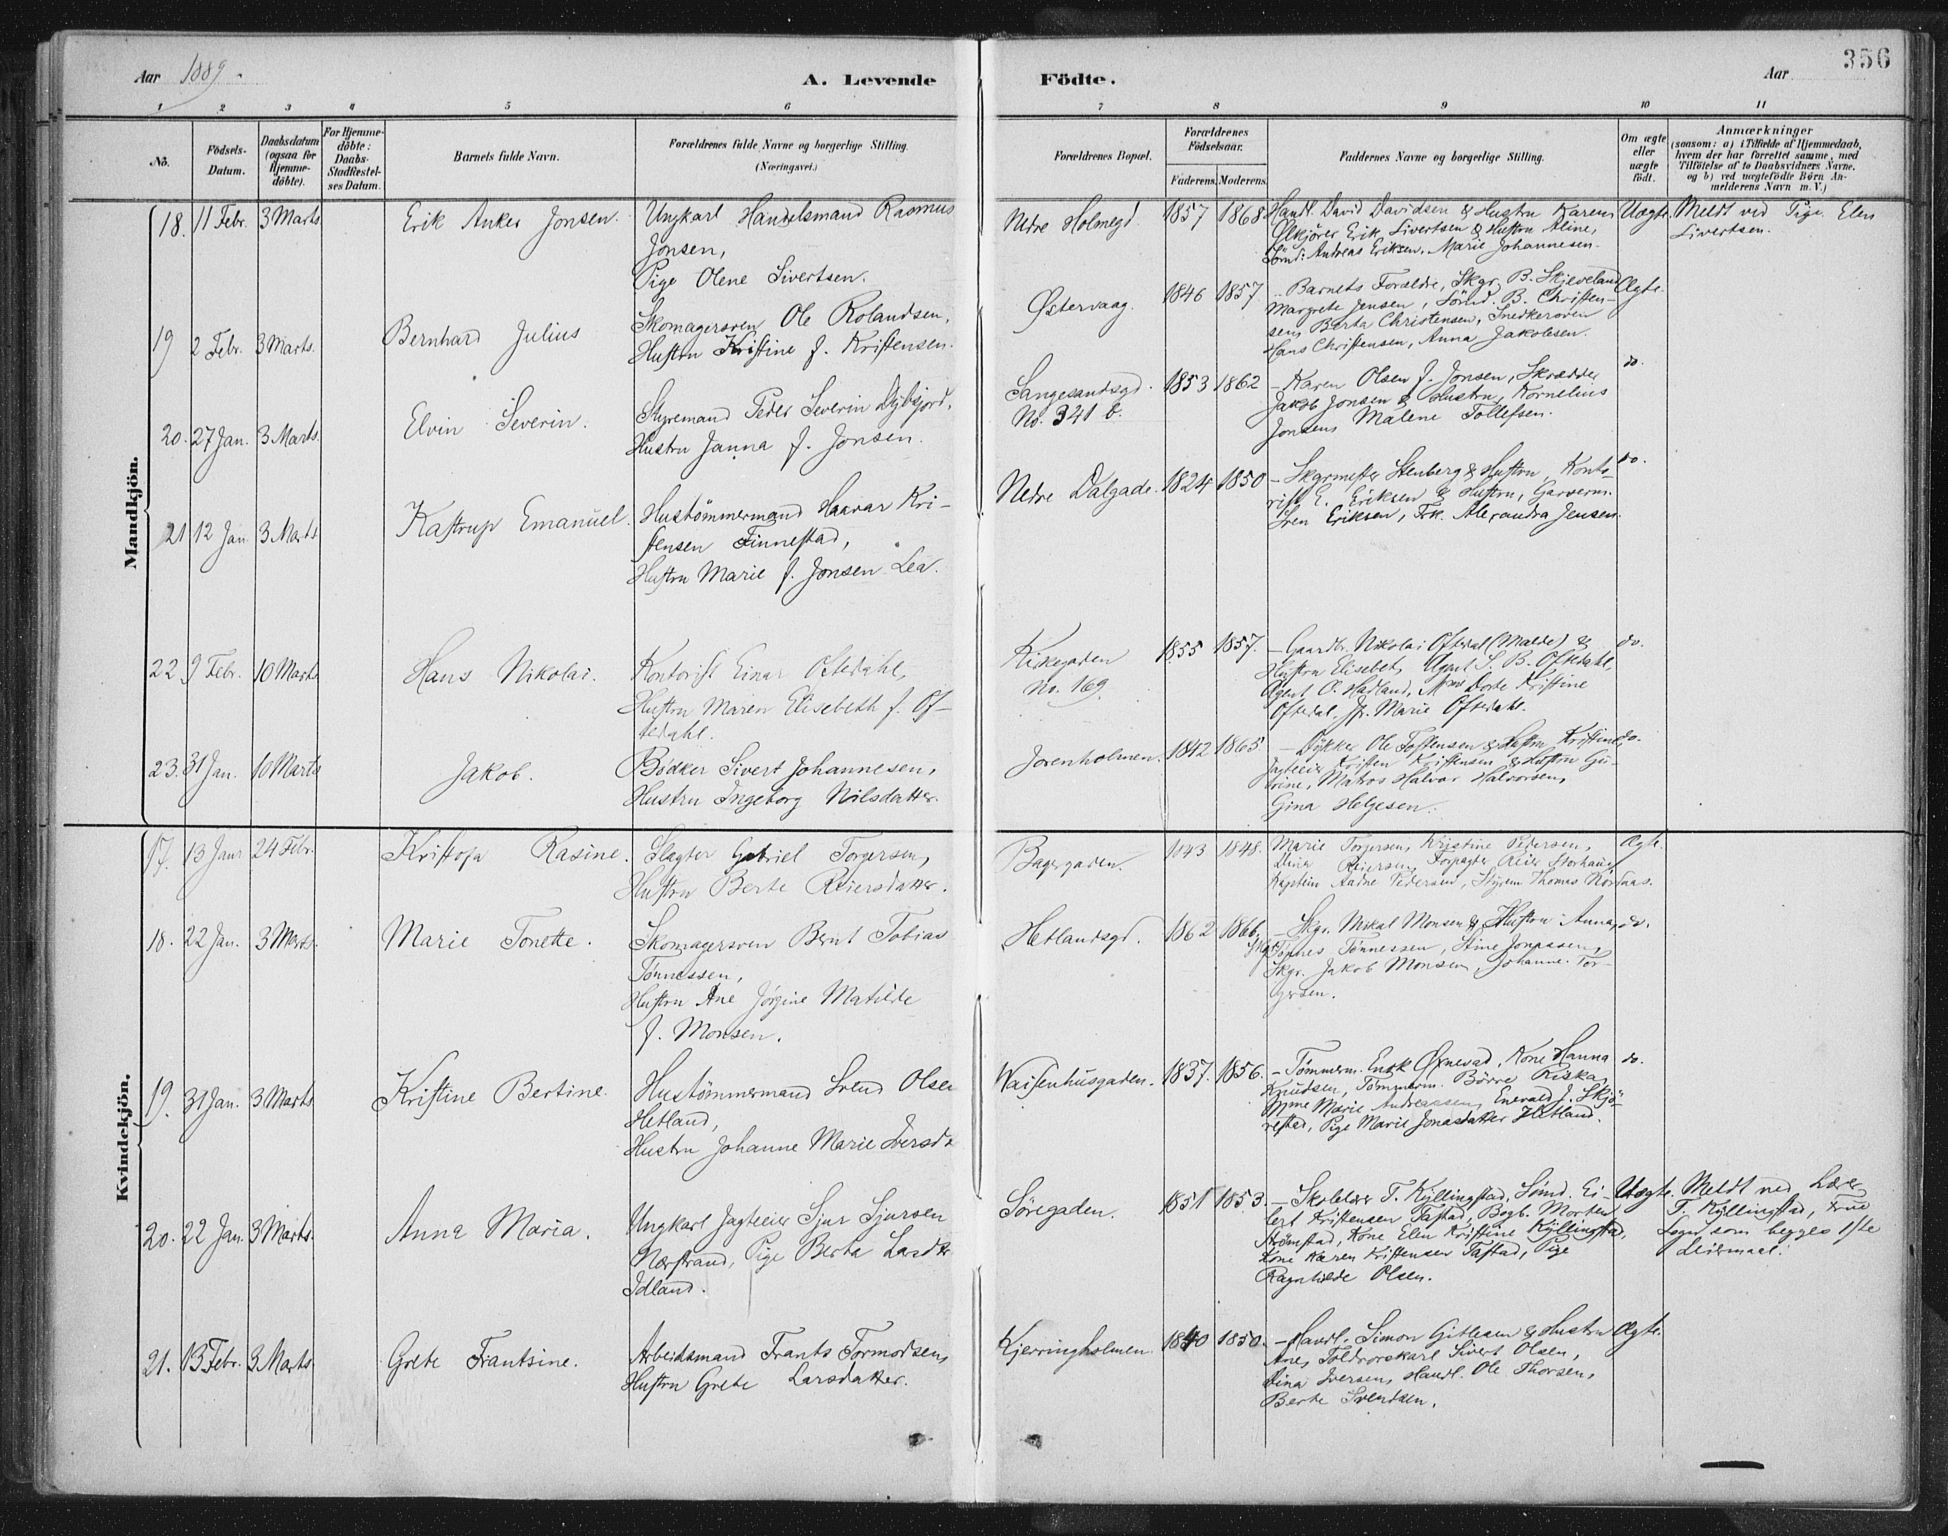 356
Aar 1889.
A. Levende
Födte.
Aar
1 2 3 4 5 6 7 8 9 10 11
No.
Födsels-
Datum.
Daabsdatum
(ogsaa for
Hjemme-
döbte).
For Hjemme-
döbte:
Daabs-
Stadfæstel-
ses Datum.
Barnets fulde Navn.
Forældrenes fulde Navne og borgerlige Stilling.
(Næringsvei.)
Forældrenes Bopæl.
Forældrenes
Födselsaar.
Faderens. Moderens.
Faddernes Navne og borgerlige Stilling.
Om ægte
eller
uægte
födt.
Anmærkninger
(saasom: a) i Tilfælde af Hjemmedaab,
hvem der har forrettet samme, med
Tilföielse af to Daabsvidners Navne,
og b) ved uægtefödte Börn An-
melderens Navn m. V.)
Mandkjön.
18. 11 Febr. 3 Marts Erik Anker Jonsen.
Ungkarl Handelsmand Rasmus
Jonsen,
Pige Olene Sivertsen.
Nedre Holmegd. 1857 1868
Handl. David Davidsen & Hustru Karen,
Ølkjører Erik Sivertsen & Hustru Aline,
Sømd: Andreas Eriksen, Marie Johannesen.
Uægte.
Meldt ved Pige Elen
Sivertsen.
19 2 Febr. 3 Marts. Bernhard Julius
Skomagersven Ole Rolandsen,
Hustru Kristine f. Kristensen.
Østervaag. 1846 1857
- Barnets Forældre, Skgr. B. Skjeveland
Margrete Jensen, Sømd. B. Christen-
sen, Berta Christensen, Snedkersven
Hans Christensen, Anna Jakobsen.
Ægte.
20. 27 Jan. 3 Marts. Elvin Severin.
Styremand Peder Severin Dybfjord,
Hustru Janna f. Jonsen.
Langesandsgd.
No. 341 b.
1853 1862
- Karen Olsen f. Jonsen, Skrædder
Jakob Jonsen & Hustru, Kornelius
Jonsen, Malene Tollefsen.
do.
21 12 Jan 3 Marts Kastrup Emanuel.
Hustömmermand Haavar Kri-
stensen Finnestad,
Hustru Marie f. Jonsen Lea.
Nedre Dalgade. 1824 1850
- Skgrmester Stenberg & Hustru, Konto-
rist E. Eriksen & Hustru, Garverm.
Iven Eriksen, Frk. Alexandra Jensen.
do.
22 9 Febr. 10 Marts Hans Nikolai.
Kontorist Einar Oftedahl,
Hustru Maren Elisebeth f. Of-
tedahl.
Kirkegaden
No. 169.
1855 1857.
- Gaardbr. Nikolai Oftedal (Malde) &
Hustru Elisebet, Agent S. B. Oftedahl,
Agent O. Hadland, Mme Dorte Kristine
Oftedal, Jfr. Marie Oftedahl.
do.
23. 31 Jan. 10 Marts Jakob.
Bødker Sivert Johannesen,
Hustru Ingeborg Nilsdatter.
Jorenholmen. 1842 1865.
- Dykker Ole Tostensen & Hustru Kristine,
Jagteier Kristen Kristensen & Hustru Gu-
rine, Matros Halvar Halvorsen,
Gina Helgesen.
do.
Kvindekjön.
17. 13 Janr 24 Febr. Kristofa Rasine.
Slagter Gabriel Torgersen,
Hustru Berte Reiersdatter.
Bagergaden. 1843 1848.
Marie Torgersen, Kristine Pedersen,
Elina Reiersen, Forpagter Reier Storhaug,
Kaptein Aadne Pedersen, Styrem Thomas
Ægte.
18. 22 Jan. 3 Marts. Marie Tonette.
Skomagersven Bernt Tobias
Tönnessen,
Hustru Ane Jörgine Matilde
f. Monsen.
Hetlandsgd. 1862 1866.
- Skgr. Mikal Monsen & Hustru Anna,
Skgr Tönnes Tönnessen, Stine Jonassen,
Skgr. Jakob Monsen, Johanne Tor-
gersen.
do.
19. 31 Jan. 3 Marts. Kristine Bertine.
Hustömmermand Svend Olsen
Hetland,
Hustru Johanne Marie Iversdr
Waisenhusgaden. 1837. 1856.
- Tömmerm. Enok Ørnevad, Kone Hanna
Knudsen, Tömmerm. Börre Riska,
Mme Marie Andreassen, Enevald J. Skjö-
restad, Pige Marie Jonasdatter Hetland.
do.
20. 22 Jan. 3 Marts. Anna Maria.
Ungkarl Jagteeier Sjur Sjursen
Nærstrand, Pige Berta Larsdr
Idland.
Søregaden. 1851 1853.
- Skolelær T. Kyllingstad, Sömd. Ei-
lert Kristensen Tastad, Bogb. Morten
Strömstad, Kone Elen Kristine Kyllingstad,
Kone Karen Kristensen Tastad, Pige
Ragnhilde Olsen.
Uægte.
Meldt ved Lærer
T. Kyllingstad, Frue
Sogn, som begges 1ste
Leiermaal.
21. 13 Febr. 3 Marts. Grete Frantsine.
Arbeidsmand Frants Tormodsen,
Hustru Grete Larsdatter.
Kjerringholmen. 1840 1850.
- Handl. Simon Gitlesen & Hustru
Ane, Toldrorskarl Sivert Olsen,
Dina Iversen, Handl. Ole Thorsen,
Berte Svendsen.
Ægte.